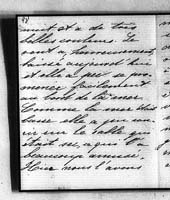 nuit et a de très
belles couleurs. Le
vent a, heureusement,
baissé aujourd'hui
et elle a pu se pro-
mener facilement
au bord de la mer.
la mer était
basse elle a que
sur le sable qui
était sec, a qui l'a
beaucoup amusée.
Nous nous l'avons